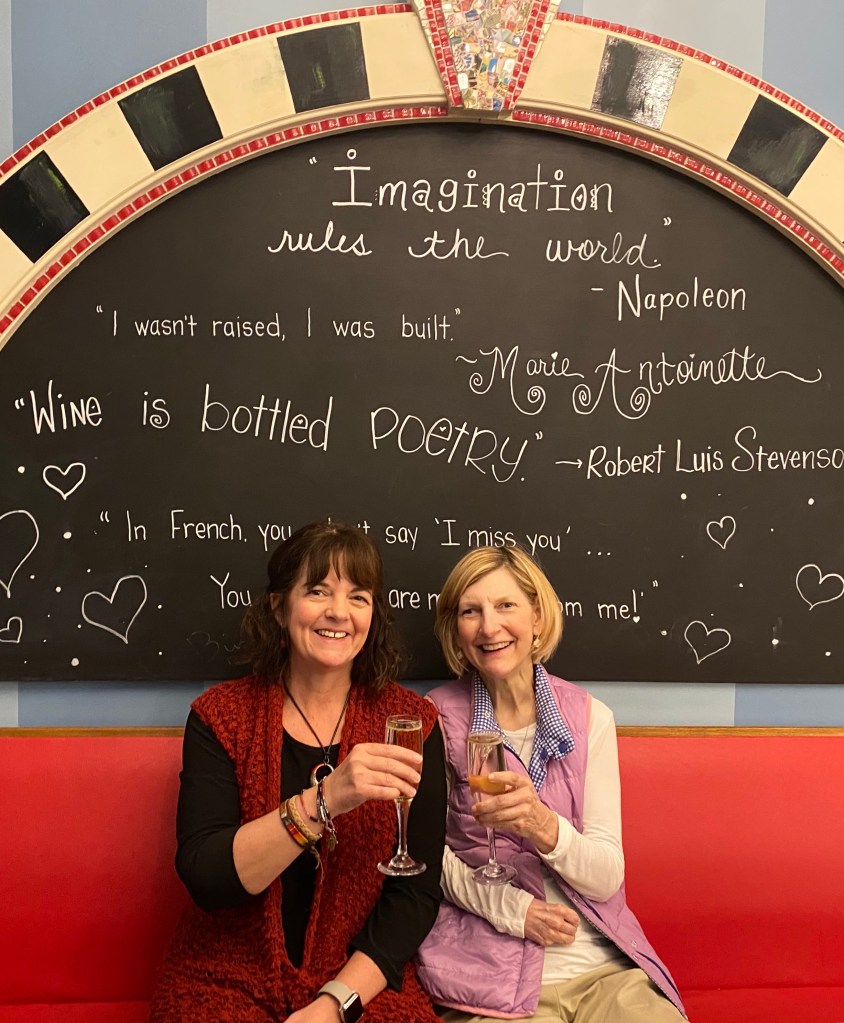 "Imagination
rules the world."
- Napoleon
"I wasn't raised, I was built."
~Marie Antoinette
"Wine is bottled poetry."
→Robert Luis Stevenso
"In French, you say 'I miss you' ...
You are me!' "